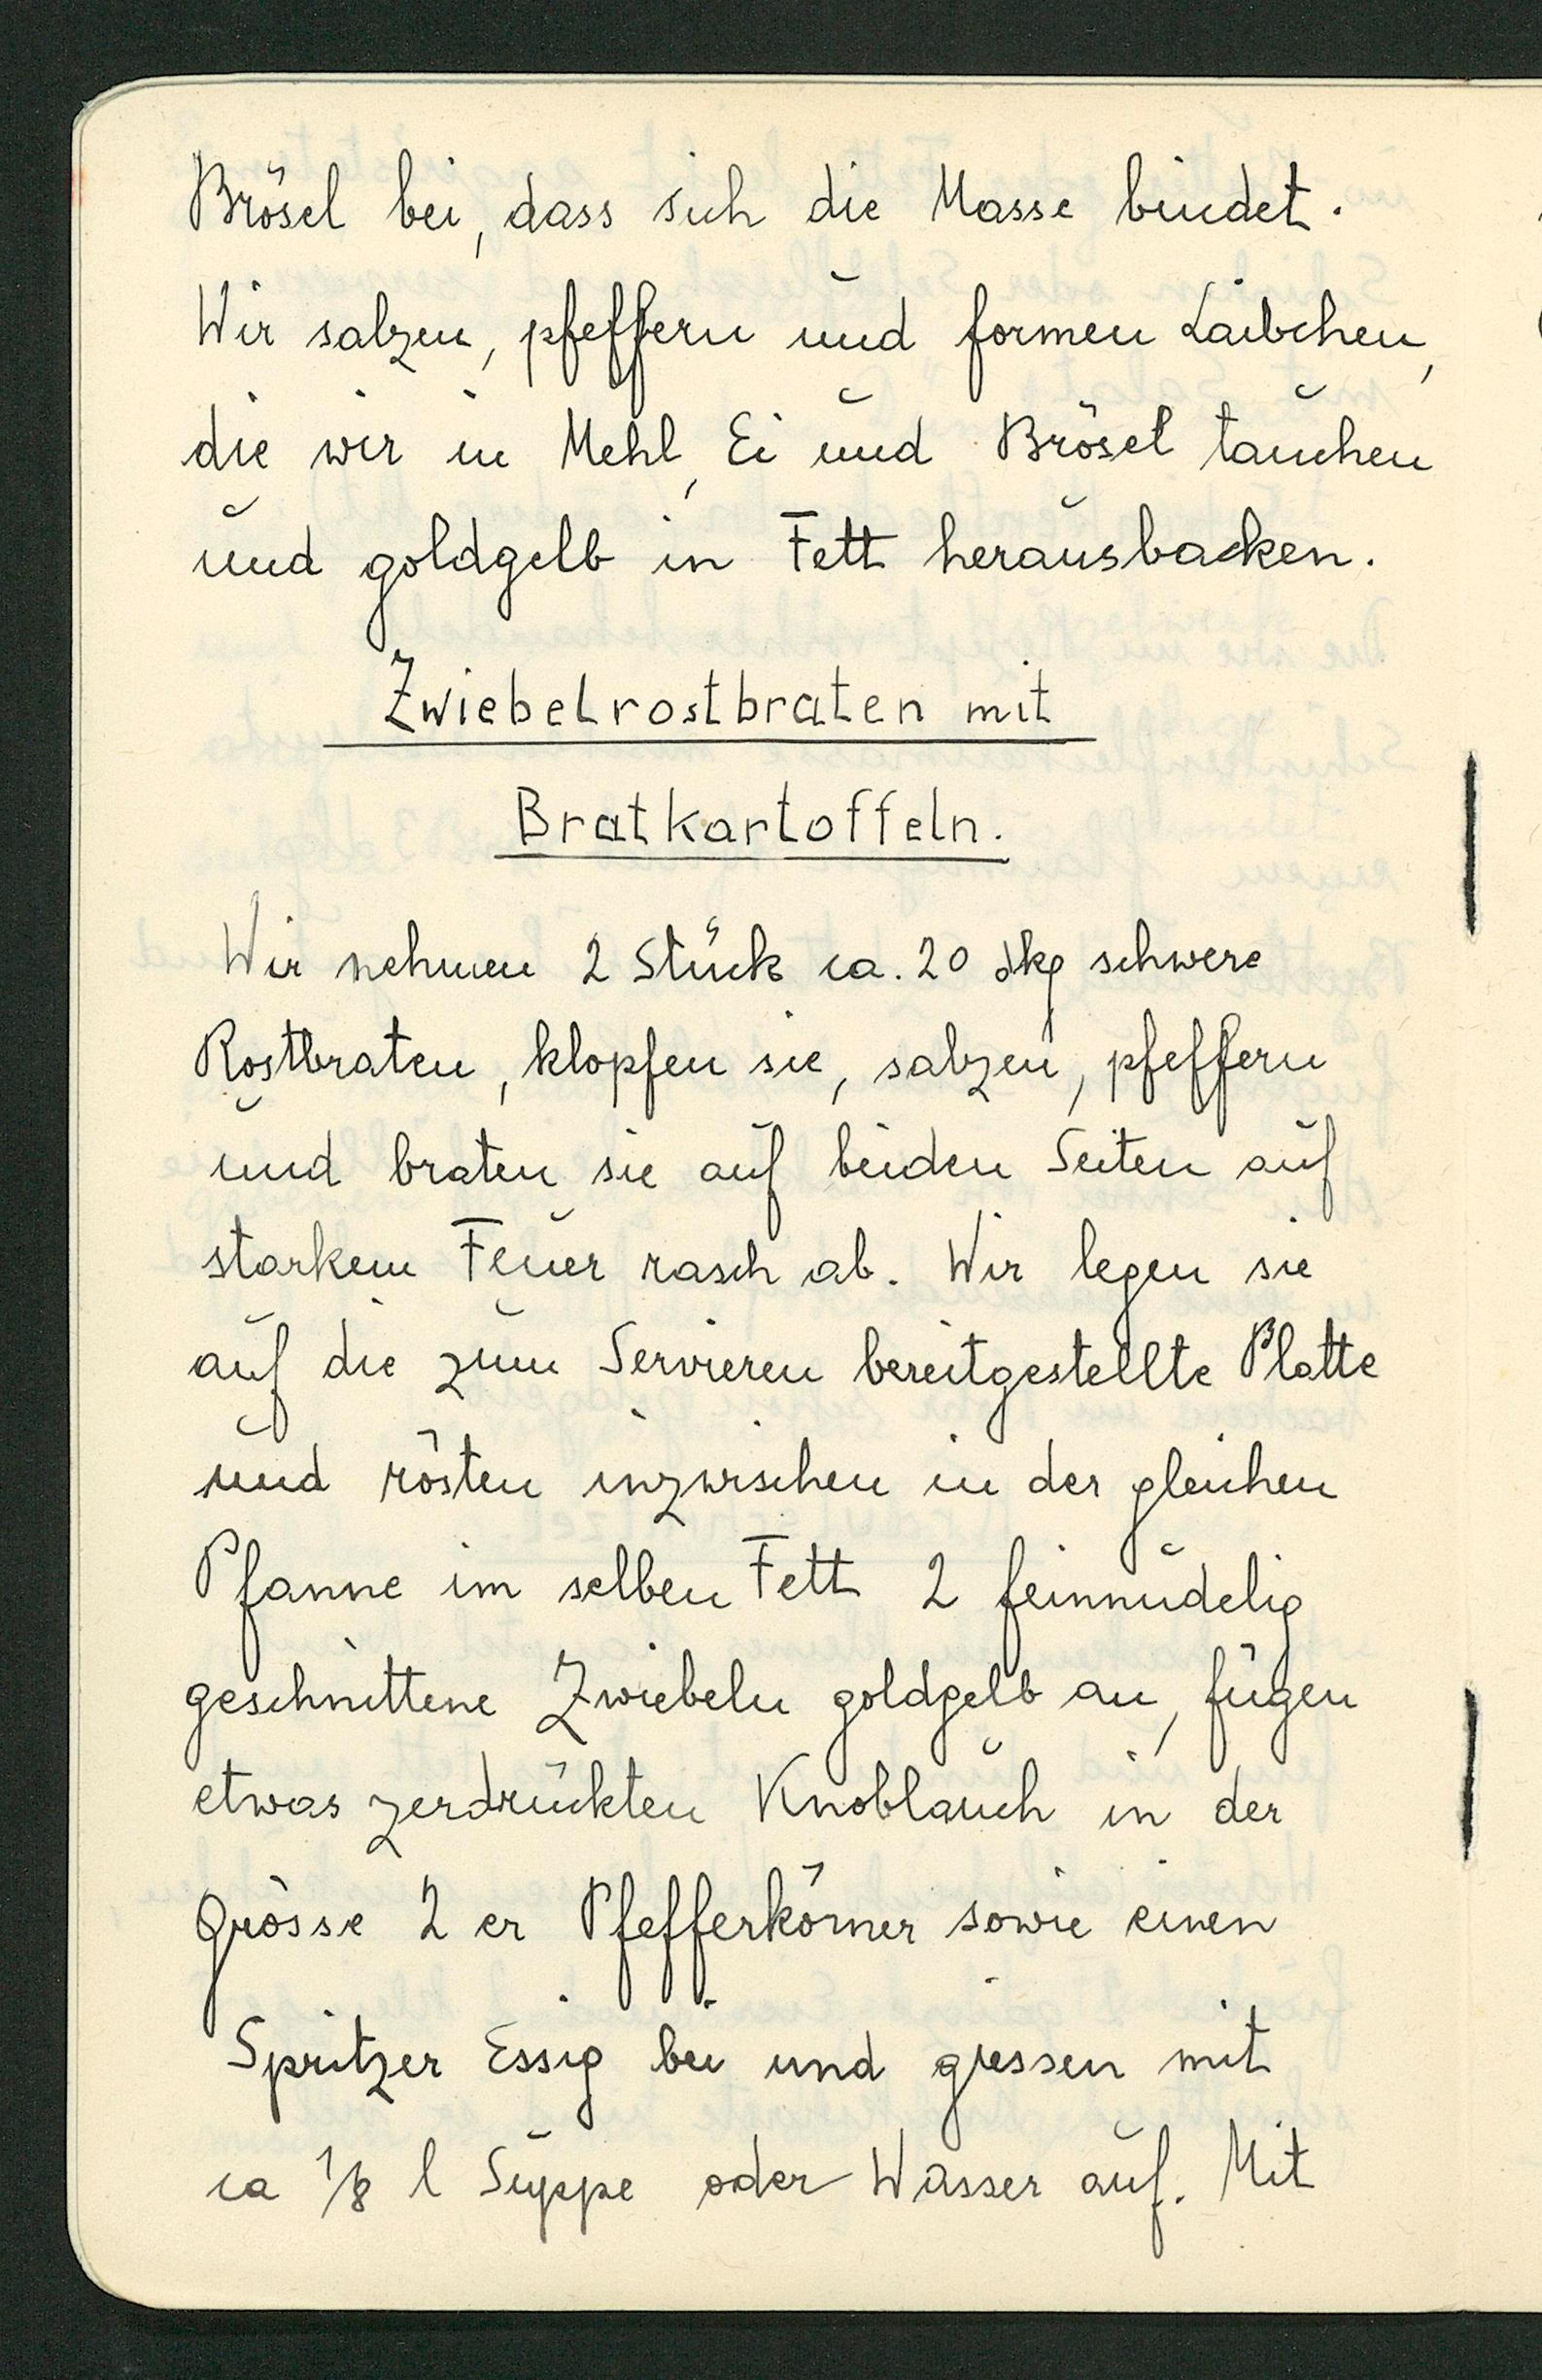 Brösel bei, dass sich die Masse bindet.
Wir salzen, pfeffern und formen Laibchen,
die wir in Mehl, Ei und Brösel tauchen
und goldgelb in Fett herausbacken.
Zwiebelrostbraten mit
Bratkartoffeln.
Wir nehmen 2 Stück ca. 20 dkg schwere
Rostbraten, klopfen sie, salzen, pfeffern
und braten sie auf beiden Seiten auf
starkem Feuer rasch ab. Wir legen sie
auf die zum Servieren bereitgestellte Platte
und rösten inzwischen in der gleichen
Pfanne im selben Fett 2 feinnudelig
geschnittene Zwiebeln goldgelb an, fügen
etwas zerdrückten Knoblauch in der
Grösse 2 er Pfefferkörner sowie einen
Spritzer Essig bei und giessen mit
ca 1/8 l Suppe oder Wasser auf. Mit